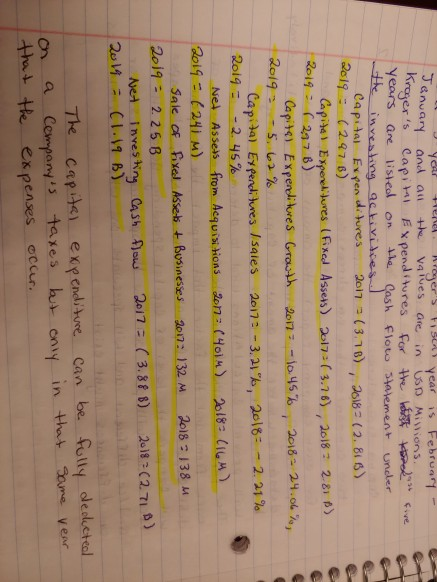 year Kroger Fiscal year is February
January and all the values are in USD Millions.
Kroger's Capital Expenditures for the last five
years are listed on the Cash flow statement under
the investing activities
Capital Expenditures 2017 = (3.7B), 2018 = (2.81B)
2019 = (2.97B)
Capital Expenditures (Fixed Assets) 2017 = (3.7B), 2018 = 2.81B)
2019 = (2.97B)
Capital Expenditures Growth 2017 = -10.45%, 2018 = 24.06%,
2019 = -5.62%
Capital Expenditures / sales 2017 = -3.21%, 2018 = -2.29%
2019 = -2.45%
Net Assets from Acquisitions 2017 = (401M) 2018 = (16M)
2019 = (241M)
Sale of Fixed Assets + Businesses 2017 = 132M 2018 = 138M
2019 = 2.25B
Net Investing Cash flow 2017 = (3.88B) 2018 = (2.71B)
2019 = (1.19B)
The capital expenditure can be fully deducted
on a company's taxes but only in that same year
that the expenses occur.